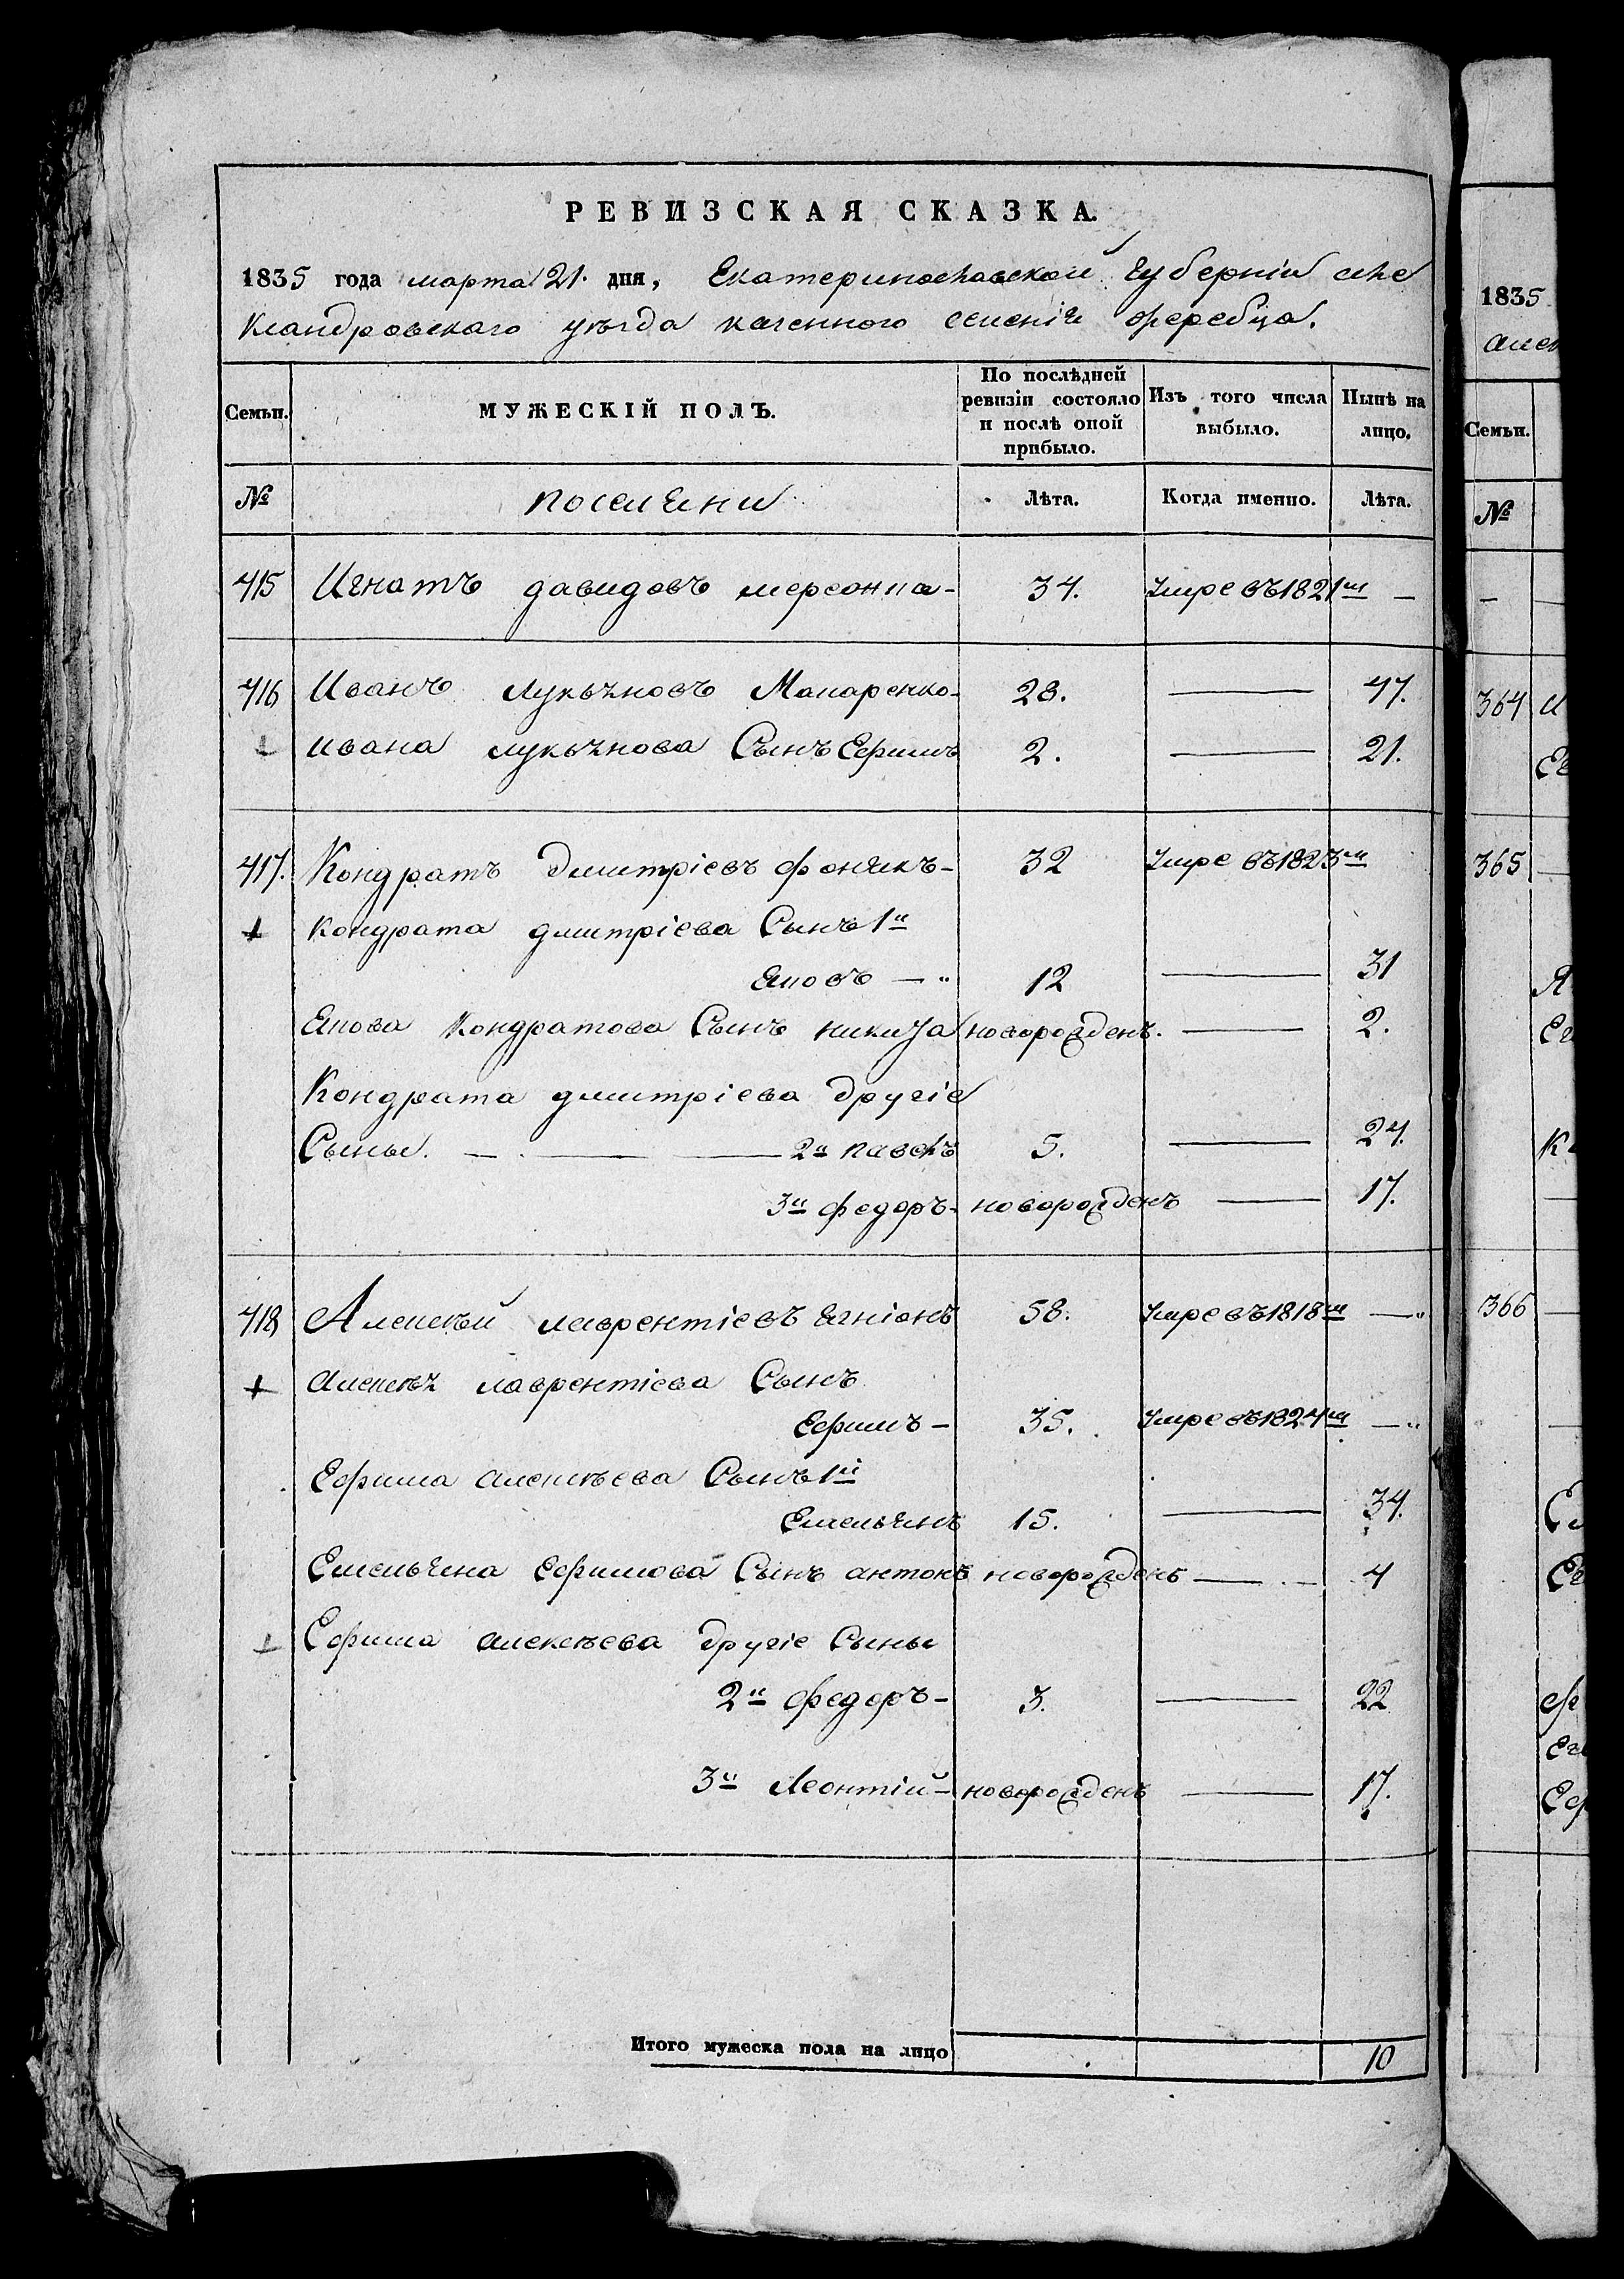 РЕВИЗСКАЯ СКАЗКА.
1835 года марта 21. дня, Екатеринославской губерніи але
ксандровскаго уѣзда казенного селенія жеребца.
Семьи.
МУЖЕСКІЙ ПОЛЪ.
По послѣдней ревизіи состояло и послѣ оной прибыло.
Изъ того числа выбыло.
Нынѣ на лицо.
№ поселяни Лѣта. Когда именно. Лѣта.
415 Игнатъ давидовъ 34. Умре въ 1821м —
416 Иванъ лукьяновъ Макаренко- 28. — 47.
ивана лукьянова Сынъ Ефимъ 2. — 21.
417. Кондратъ Дмитріевъ 32 Умре въ 1823м
+ Кондрата дмитріева Сынъ 1й
Яковъ — 12 — 31
Якова Кондратова Сынъ никита новорожденъ. — 2.
Кондрата дмитріева другіе
Сыны. — 2й павелъ 5. — 24.
3й федоръ- новорожденъ — 17.
418 Алексѣй лаврентіевъ 58. Умре въ 1818м —
+ алексѣя лаврентіева Сынъ
Ефимъ — 35. Умре въ 1824м —
Ефима алексѣева Сынъ 1й
Емельянъ 15. — 34.
Емельяна Ефимова Сынъ антонъ новорожденъ — 4
Ефима алексѣева другіе Сыны
2й федоръ- 3. — 22
3й Леонтій- новорожденъ — 17.
Итого мужеска пола на лицо 10
1835
алек
Семьи.
№
364 И
365
366